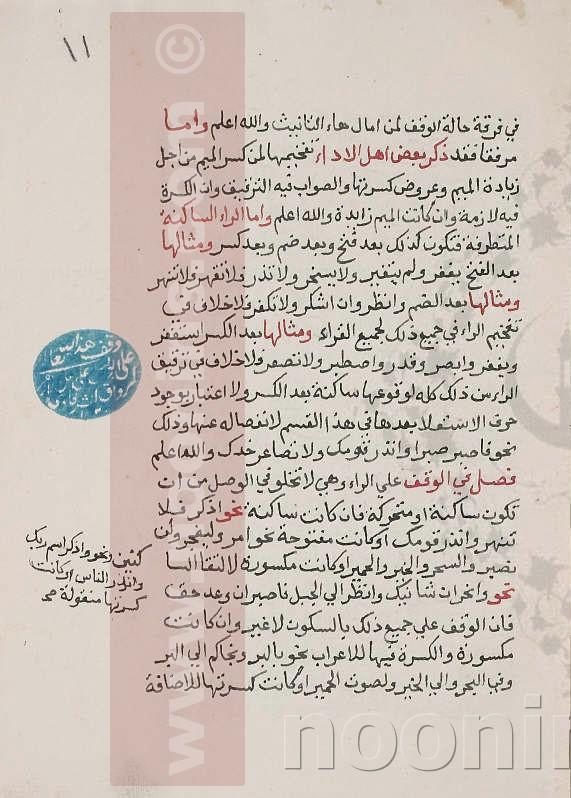 ١١
في فرقة حالة الوقف لمن امال هاء التانيث والله اعلم واما
مرفقا فقد ذكر بعض اهل الاداء تفخيمها لمن كسر الميم من اجل
زيادة الميم وعروض كسرتها والصواب فيه الترقيق وان الكسرة
فيه لازمة وان كانت الميم زايدة والله اعلم واما الراء الساكنة
المتطرفة فتكون كذلك بعد فتح وبعد ضم وبعد كسر ومثالها
بعد الفتح يغفر ولم يتغير ولا يسخر ولا تذر فلا تقهر فلا تنهر
ومثالها بعد الضم وانظر وان اشكر ولا تكفر فلا خلاف في
تفخيم الراء في جميع ذلك لجميع القراء ومثالها بعد الكسر استغفر
ويغفر وابصر وقدر واصطبر ولا تصعر فلا خلاف في ترقيق
الراء من ذلك كله لوقوعها ساكنة بعد الكسر ولا اعتبار بوجود
حرف الاستعلا بعدها في هذا القسم لانفصاله عنها وذلك
نحو فاصبر صبرا وانذر قومك ولا تصاعر خدك والله اعلم
فصل في الوقف علي الراء وهي لا تخلو في الوصل من ان
تكون ساكنة او متحركة فان كانت ساكنة نحو اذكر فلا
تنهر وانذر قومك او كانت مفتوحة نحو امر وليفجر وان
نصبر والسحر والخير والحمير او كانت مكسورة لالتقا السا
كنين نحو واذكر اسم ربك
وانذر الناس او كانت
كسرتها منقولة صح
نحو وانحر ان شانيك وانظر الي الجبل ناصبر ان وعد حق
فان الوقف علي جميع ذلك بالسكون لا غير وان كانت
مكسورة والكسرة فيها للاعراب نحو بالبر ونجاكم الي البر
وفي البحر والي الخير ولصوت الحمير او كانت كسرتها للاضافة
وقف هذا
www.
©
noonin